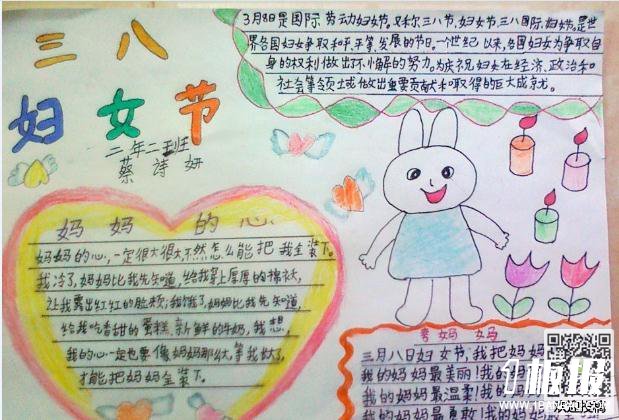 三八
妇女节
二年二班
蔡诗妍
3月8日是国际劳动妇女节。又称三八节、妇女节、三八国际妇女节。是世
界各国妇女争取和平、平等、发展的节日。一个世纪以来,各国妇女为争取自
身的权利做出了不懈的努力。为庆祝妇女在经济、政治和
社会等领域做出重要贡献和取得的巨大成就。
妈妈的心
妈妈的心,一定很大很大,不然怎么能把我全装下。
我冷了,妈妈比我先知道,给我穿上厚厚的棉袄,
让我露出红红的脸颊;我饿了,妈妈比我先知道,
给我吃香甜的蛋糕、新鲜的牛奶,我想
我的心一定也要像妈妈那么大,等我大了,
才能把妈妈全装下。
夸妈妈
三月八日妇女节,我把妈妈
我的妈妈最美丽!我的妈
我的妈妈最温柔!我的妈
我的妈妈最勇敢!我的
板报